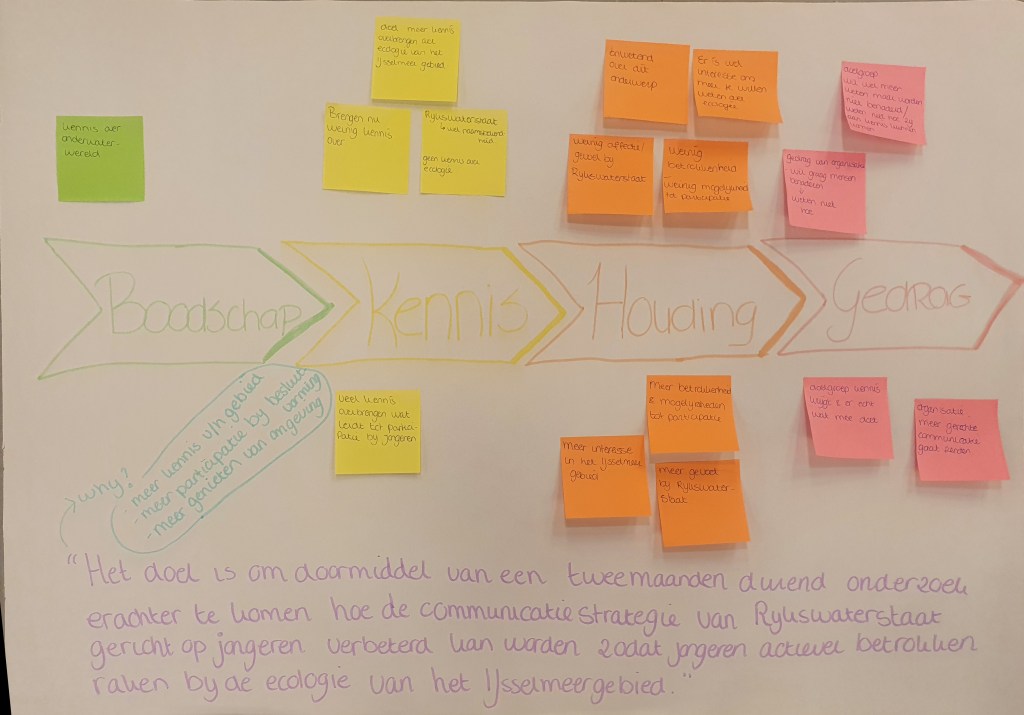 kennis over
onderwater-
wereld
doel meer kennis
overbrengen over
ecologie van het
IJsselmeer gebied
Brengen nu
weinig kennis
over
Rijkswaterstaat
↳ wel naamsbekend
heid
geen kennis over
ecologie
onwetend
over dit
onderwerp
Er is wel
interesse om
meer te willen
weten over
ecologie
weinig affectie/
gevoel bij
Rijkswaterstaat
weinig
betrokkenheid
→ weinig mogelijkheid
tot participatie
doelgroep
wil wel meer
weten maar worden
niet benaderd/
weten niet hoe zij
aan kennis kunnen
gedrag van organisatie
wil graag mensen
benaderen
↓
weten niet
hoe
Boodschap
Kennis
Houding
Gedrag
→ why?
- meer kennis v/h. gebied
- meer participatie bij besluit
vorming
- meer genieten van omgeving
veel kennis
overbrengen wat
leidt tot partici-
patie bij jongeren
meer betrokkenheid
& mogelijkheden
tot participatie
meer interesse
in het IJsselmeer
gebied
meer gevoel
bij Rijkswater-
staat
doelgroep kennis
krijgt & er echt
wat mee doet
organisatie
meer gerichte
communicatie
gaat zenden
"Het doel is om doormiddel van een tweemaanden durend onderzoek
erachter te komen hoe de communicatie strategie van Rijkswaterstaat
gericht op jongeren verbeterd kan worden zodat jongeren actiever betrokken
raken bij de ecologie van het IJsselmeergebied."